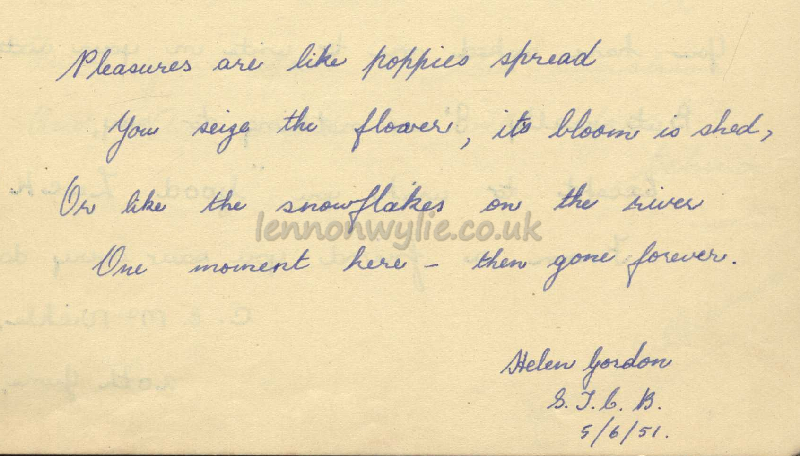 Pleasures are like poppies spread
You seize the flower, its bloom is shed,
Or like the snowflakes on the river
lennonwylie.co.uk
One moment here – then gone forever.
Helen Gordon
S.T.C.B.
5/6/51.